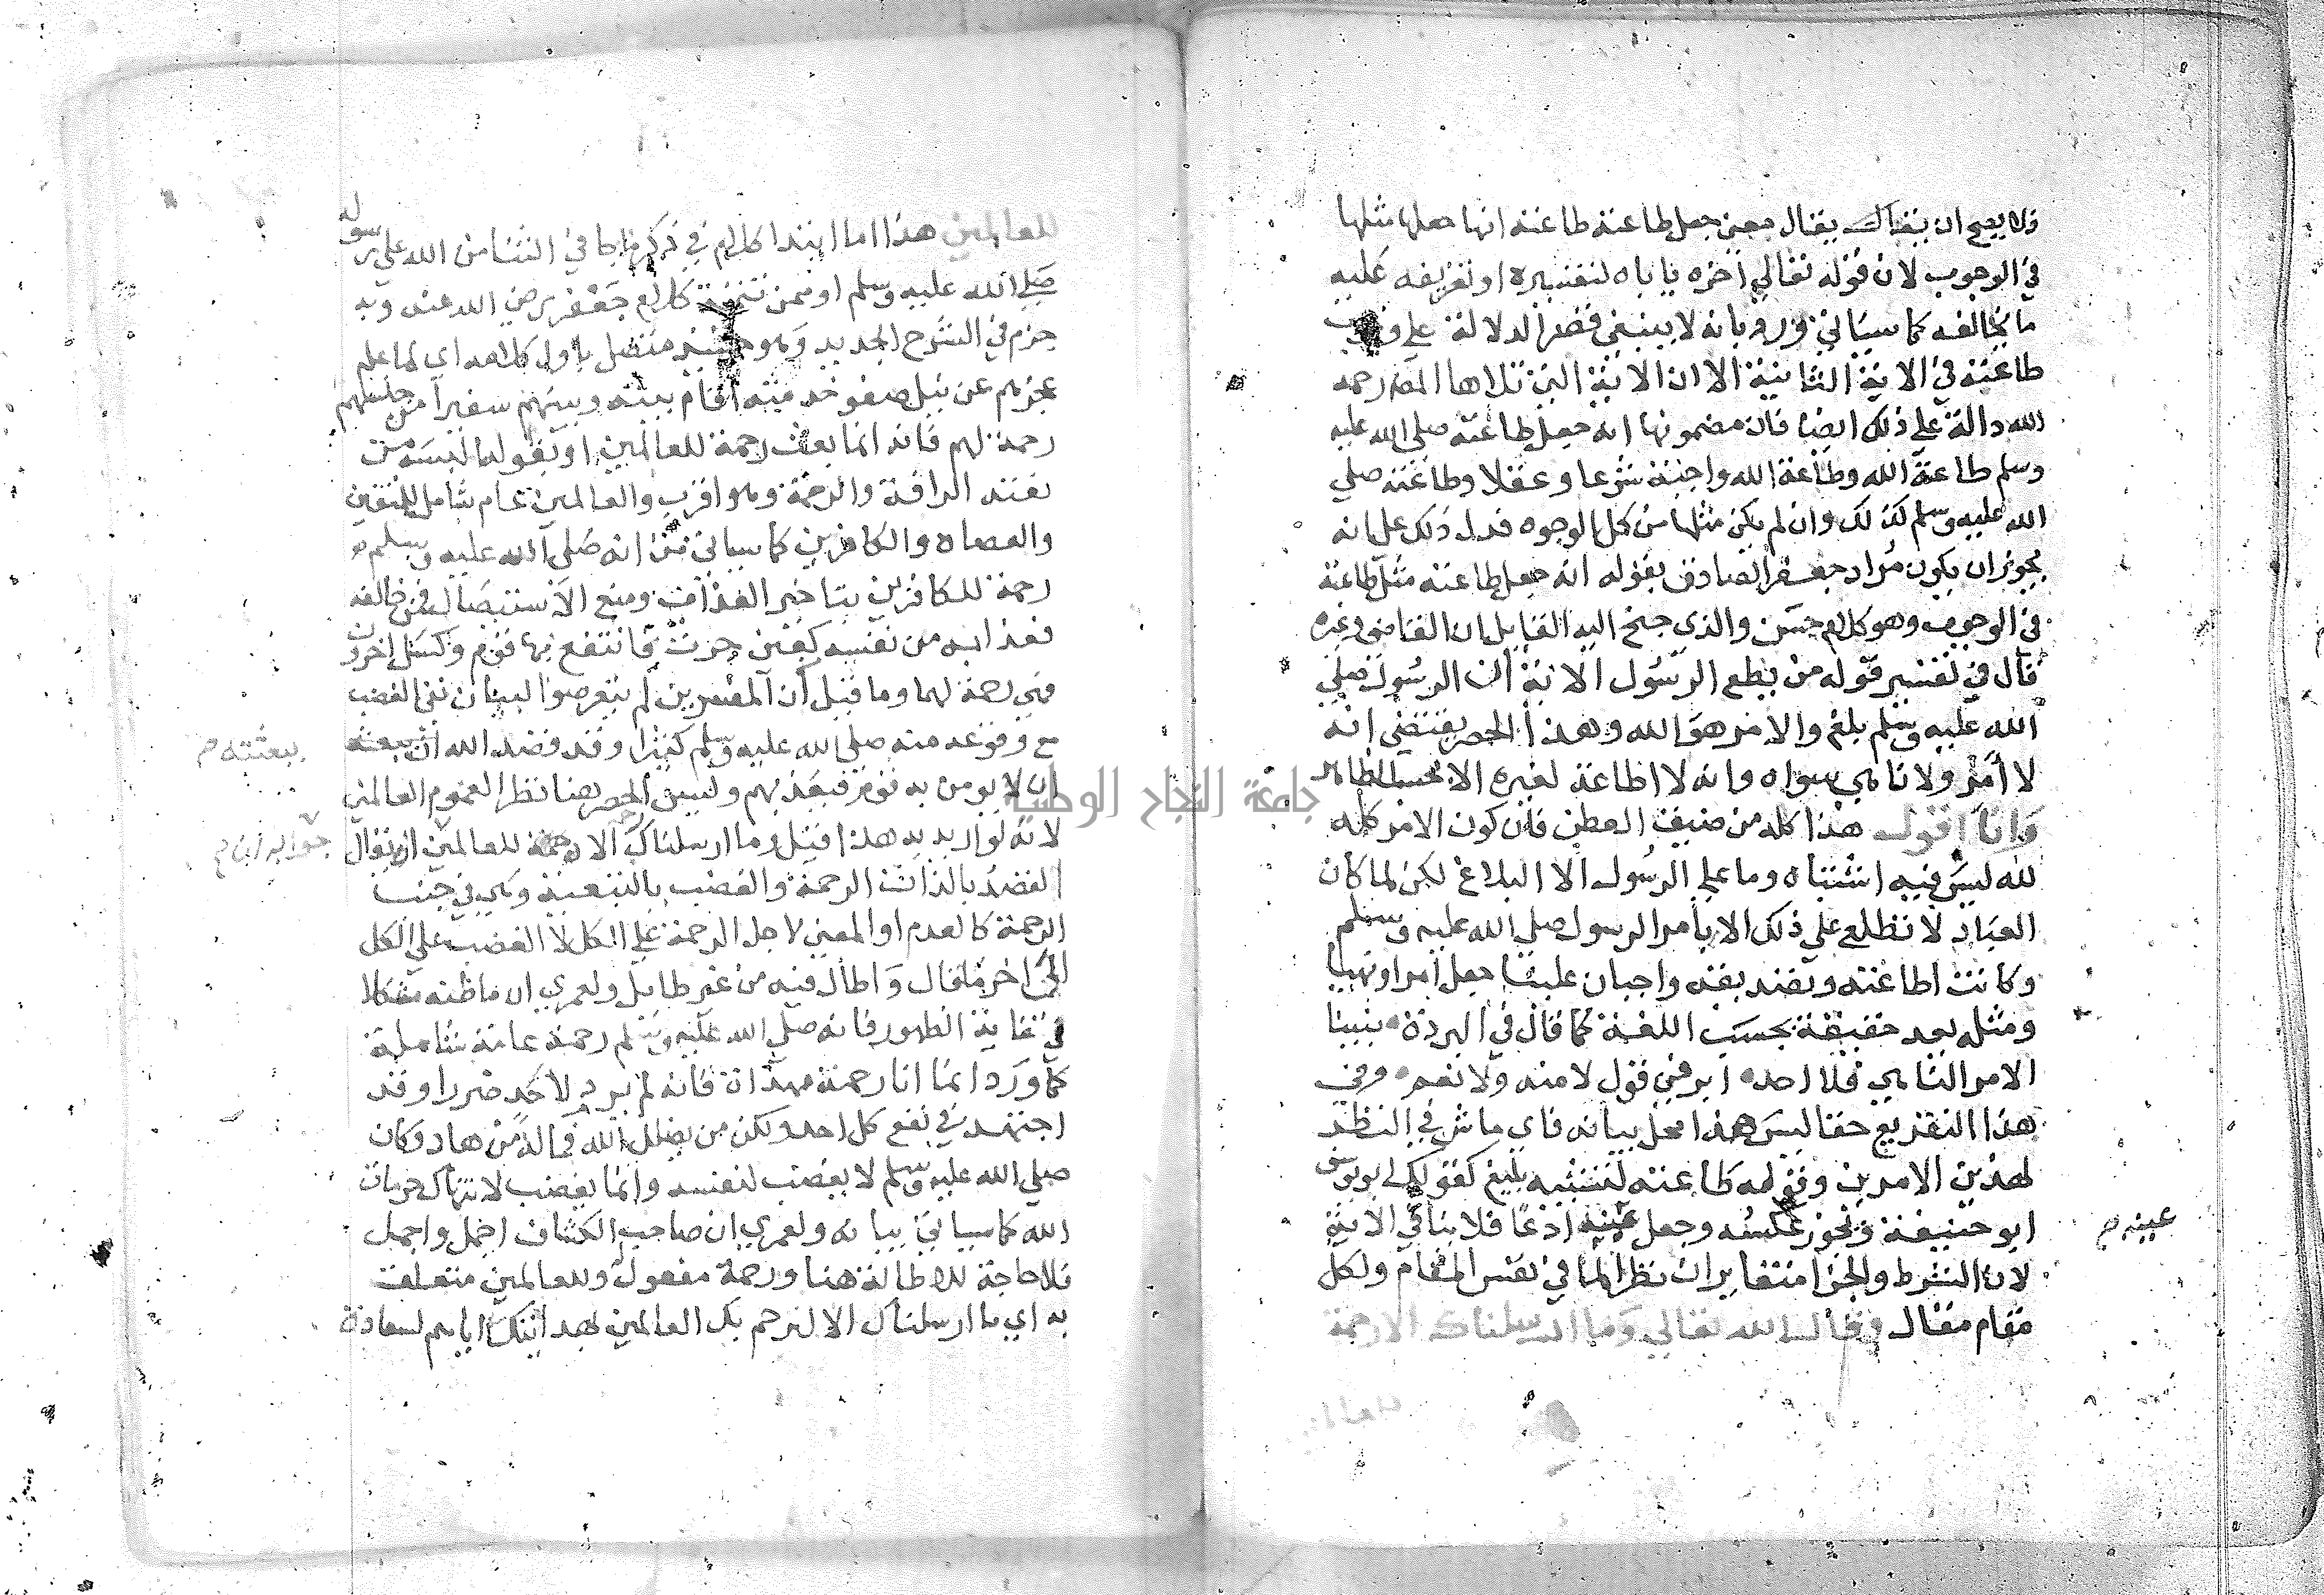 ولا يصح ان يقال يقال معنى جعل طاعته طاعته انها جعلها مثلها
في الوجوب لان قوله تعالى اخره ياباه لتفسيره او تفريعه عليه
ما يخالفه كما سياتي ورد بانه لا ينبغي قصر الدلالة على وجوب
طاعته في الاية الثانية الا ان الاية التي تلاها المص رحمه
الله دالة على ذلك ايضا فان مضمونها انه جعل طاعته صلى الله عليه
وسلم طاعة الله وطاعة الله واجبة شرعا وعقلا وطاعته صلى
الله عليه وسلم كذلك وان لم يكن مثلها من كل الوجوه فدل ذلك على انه
يجوز ان يكون مراد جعفر الصادق بقوله انه جعل طاعته مثل طاعته
في الوجوب وهو كلام حسن والذي جنح اليه القايل ان القاضي وغيره
قال في تفسير قوله من يطع الرسول الاية ان الرسول صلى
الله عليه وسلم بلغ والامر هو الله وهذا الحصر يقتضي انه
لا امر ولا ناهي سواه وانه لا اطاعة لغيره الا بحسب الظاهر
وانا اقول هذا كله من ضيق العطن فان كون الامر كله
لله ليس فيه اشتباه وما على الرسول الا البلاغ لكن لما كان
العباد لا تطلع على ذلك الا بامر الرسول صلى الله عليه وسلم
وكانت اطاعته وتصديقه واجبان علينا جعل امرا ونهيا
ومثله يعد حقيقة بحسب اللغة كما قال في البردة نبينا
الامر الناهي فلا احد ابر في قول لا منه ولا نعم وفي
هذا التفريع خفا ليس هذا محل بيانه فاي ماش في النظر
لهذين الامرين وقوله طاعته لتشبيه بليغ كقولك ابو يوسف
ابو حنيفة وتجوز عكسه وجعل عينه ادعا فلا ينافي الاية
عينه صح
لان الشرط والجزا متغايران نظرا لما في نفس المقام ولكل
مقام مقال وقال الله تعالى وما ارسلناك الا رحمة
للعالمين
للعالمين هذا اما ابتدا كلام في ذكر ما جا في الثنا من الله على رسوله
صلى الله عليه وسلم او من تتمة كلام جعفر رضي الله عنه وبه
جزم في الشرح الجديد وهو حينئذ متصل باول كلامه اي لما علم
عجزهم عن نيل صفو خدمته اقام بينه وبينهم سفيرا من جنسهم
رحمة لهم فانه انما بعث رحمة للعالمين او بقوله البسه من
نعته الرافة والرحمة وهو اقرب والعالمين عام شامل للمتقين
والعصاه والكافرين كما سياتي من انه صلى الله عليه وسلم
رحمة للكافرين بتاخير العذاب ومنع الاستيصال فمن خالفه
فعذابه من نفسه كعين جرت فانتفع بها قوم وكسل اخرون
فهي رحمة لهما وما قيل ان المفسرين لم يتعرضوا لبيان نفي الغضب
مع وقوعه منه صلى الله عليه وسلم كثيرا وقد قصد الله ان بعثه
ببعثته صح
ان لا يومن به قوم فيعذبهم وليس الحصر هنا نظرا لعموم العالمين
لانه لو اريد به هذا قيل وما ارسلناك الا رحمة للعالمين ان يقال
جوابه ان صح
القصد بالذات الرحمة والغضب بالتبعية وهي في جنب
الرحمة كالعدم او المعنى لاجل الرحمة على الكل لا الغضب على الكل
الى اخر ما قال واطال فيه من غير طايل ولعمري ان ما ظنه مشكلا
في غاية الظهور فانه صلى الله عليه وسلم رحمة عامة شاملة
كما ورد انما انا رحمة مهداة فانه لم يرد لاحد ضررا وقد
اجتهد في نفع كل احد ولكن من يضلل الله فما له من هاد وكان
صلى الله عليه وسلم لا يغضب لنفسه وانما يغضب لانتهاك حرمات
الله كما سياتي بيانه ولعمري ان صاحب الكشاف اجمل واجمل
فلا حاجة للاطالة هنا ورحمة مفعول وللعالمين متعلق
به اي ما ارسلناك الا لنرحم بك العالمين لهدايتك اياهم لسعادة
جامعة النجاح الوطنية